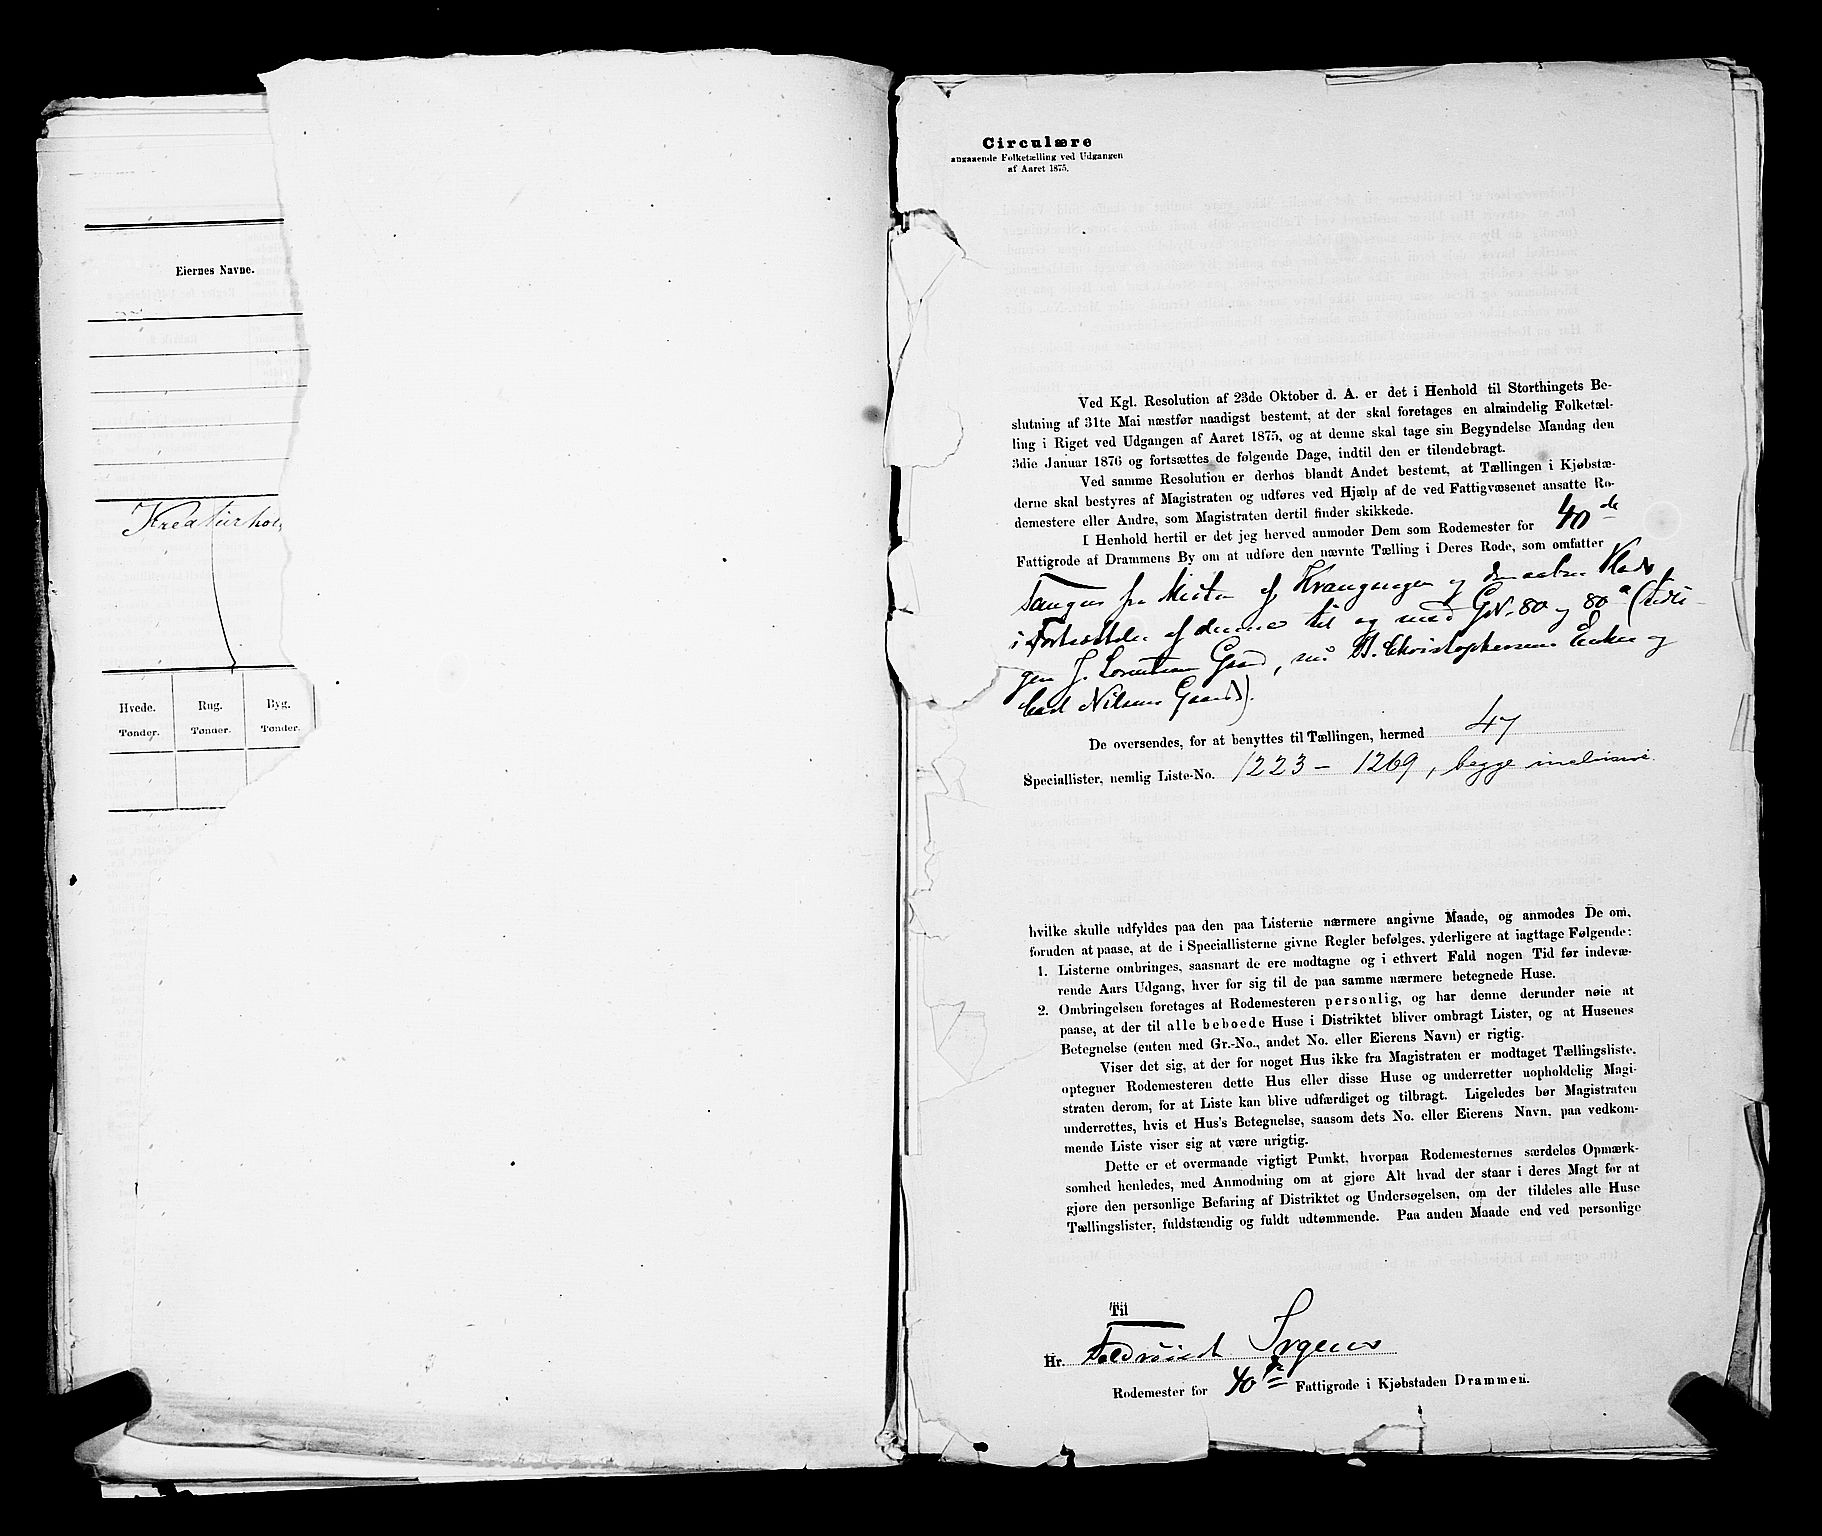 Eiernes Navne.
Kreaturhol
Hvede. Rug. Byg.
Tønder. Tønder. Tønder.
Circulære
angaaende Folketælling ved Udgangen
af Aaret 1875.
Ved Kgl. Resolution af 23de Oktober d. A. er det i Henhold til Storthingets Be-
slutning af 31te Mai næstfør naadigst bestemt, at der skal foretages en almindelig Folketæl-
ling i Riget ved Udgangen af Aaret 1875, og at denne skal tage sin Begyndelse Mandag den
3die Januar 1876 og fortsættes de følgende Dage, indtil den er tilendebragt.
Ved samme Resolution er derhos blandt Andet bestemt, at Tællingen i Kjøbstæ-
derne skal bestyres af Magistraten og udføres ved Hjælp af de ved Fattigvæsenet ansatte Ro-
demestere eller Andre, som Magistraten dertil finder skikkede.
I Henhold hertil er det jeg herved anmoder Dem som Rodemester for 40de
Fattigrode af Drammens By om at udføre den nævnte Tælling i Deres Rode, som omfatter
Tangen fra Midten af Krangangen og
i Fortsættelse af denne til og med GN. 80 og 80a (tidli-
gen J. Lorentsen Gaard, nu B. Christophersens Enke og
Carl Nilsens Gaard).
De oversendes, for at benyttes til Tællingen, hermed 47
Speciallister, nemlig Liste-No. 1223 - 1269, begge inclusive.
hvilke skulle udfyldes paa den paa Listerne nærmere angivne Maade, og anmodes De om,
foruden at paase, at de i Speciallisterne givne Regler befølges, yderligere at iagttage Følgende:
1. Listerne ombringes, saasnart de ere modtagne og i ethvert Fald nogen Tid før indevæ-
rende Aars Udgang, hver for sig til de paa samme nærmere betegnede Huse.
2. Ombringelsen foretages af Rodemesteren personlig, og har denne derunder nøie at
paase, at der til alle beboede Huse i Distriktet bliver ombragt Lister, og at Husenes
Betegnelse (enten med Gr.-No., andet No. eller Eierens Navn) er rigtig.
Viser det sig, at der for noget Hus ikke fra Magistraten er modtaget Tællingsliste,
optegner Rodemesteren dette Hus eller disse Huse og underretter uopholdelig Magi-
straten derom, for at Liste kan blive udfærdiget og tilbragt. Ligeledes bør Magistraten
underrettes, hvis et Hus's Betegnelse, saasom dets No. eller Eierens Navn, paa vedkom-
mende Liste viser sig at være urigtig.
Dette er et overmaade vigtigt Punkt, hvorpaa Rodemesternes særdeles Opmærk-
somhed henledes, med Anmodning om at gjøre Alt hvad der staar i deres Magt for at
gjøre den personlige Befaring af Distriktet og Undersøgelsen, om der tildeles alle Huse
Tællingslister, fuldstændig og fuldt udtømmende. Paa anden Maade end ved personlige
Til
Hr.
Rodemester for 40de Fattigrode i Kjøbstaden Drammen.